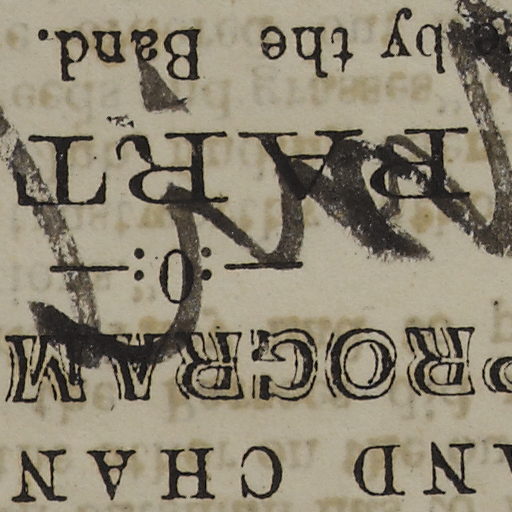 AND CHAN
PROGRAM
—:0:—
PART
by the Band.